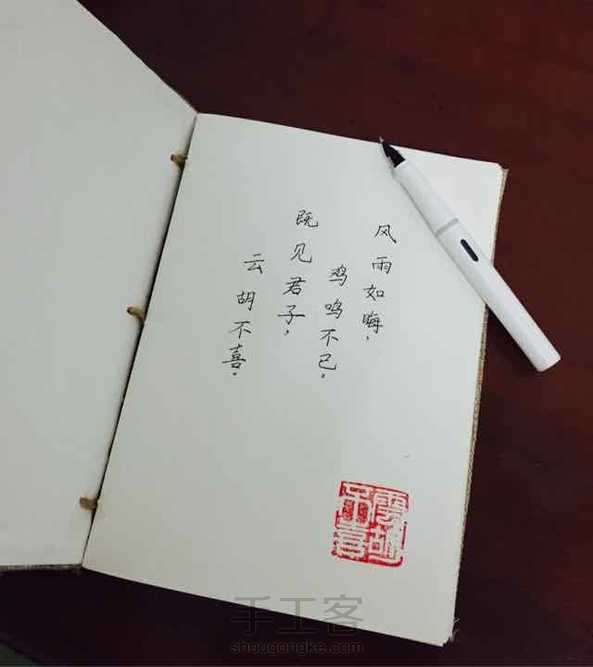 风雨如晦，
鸡鸣不已，
既见君子，
云胡不喜。
雲胡
不喜
手工客
shougongke.com